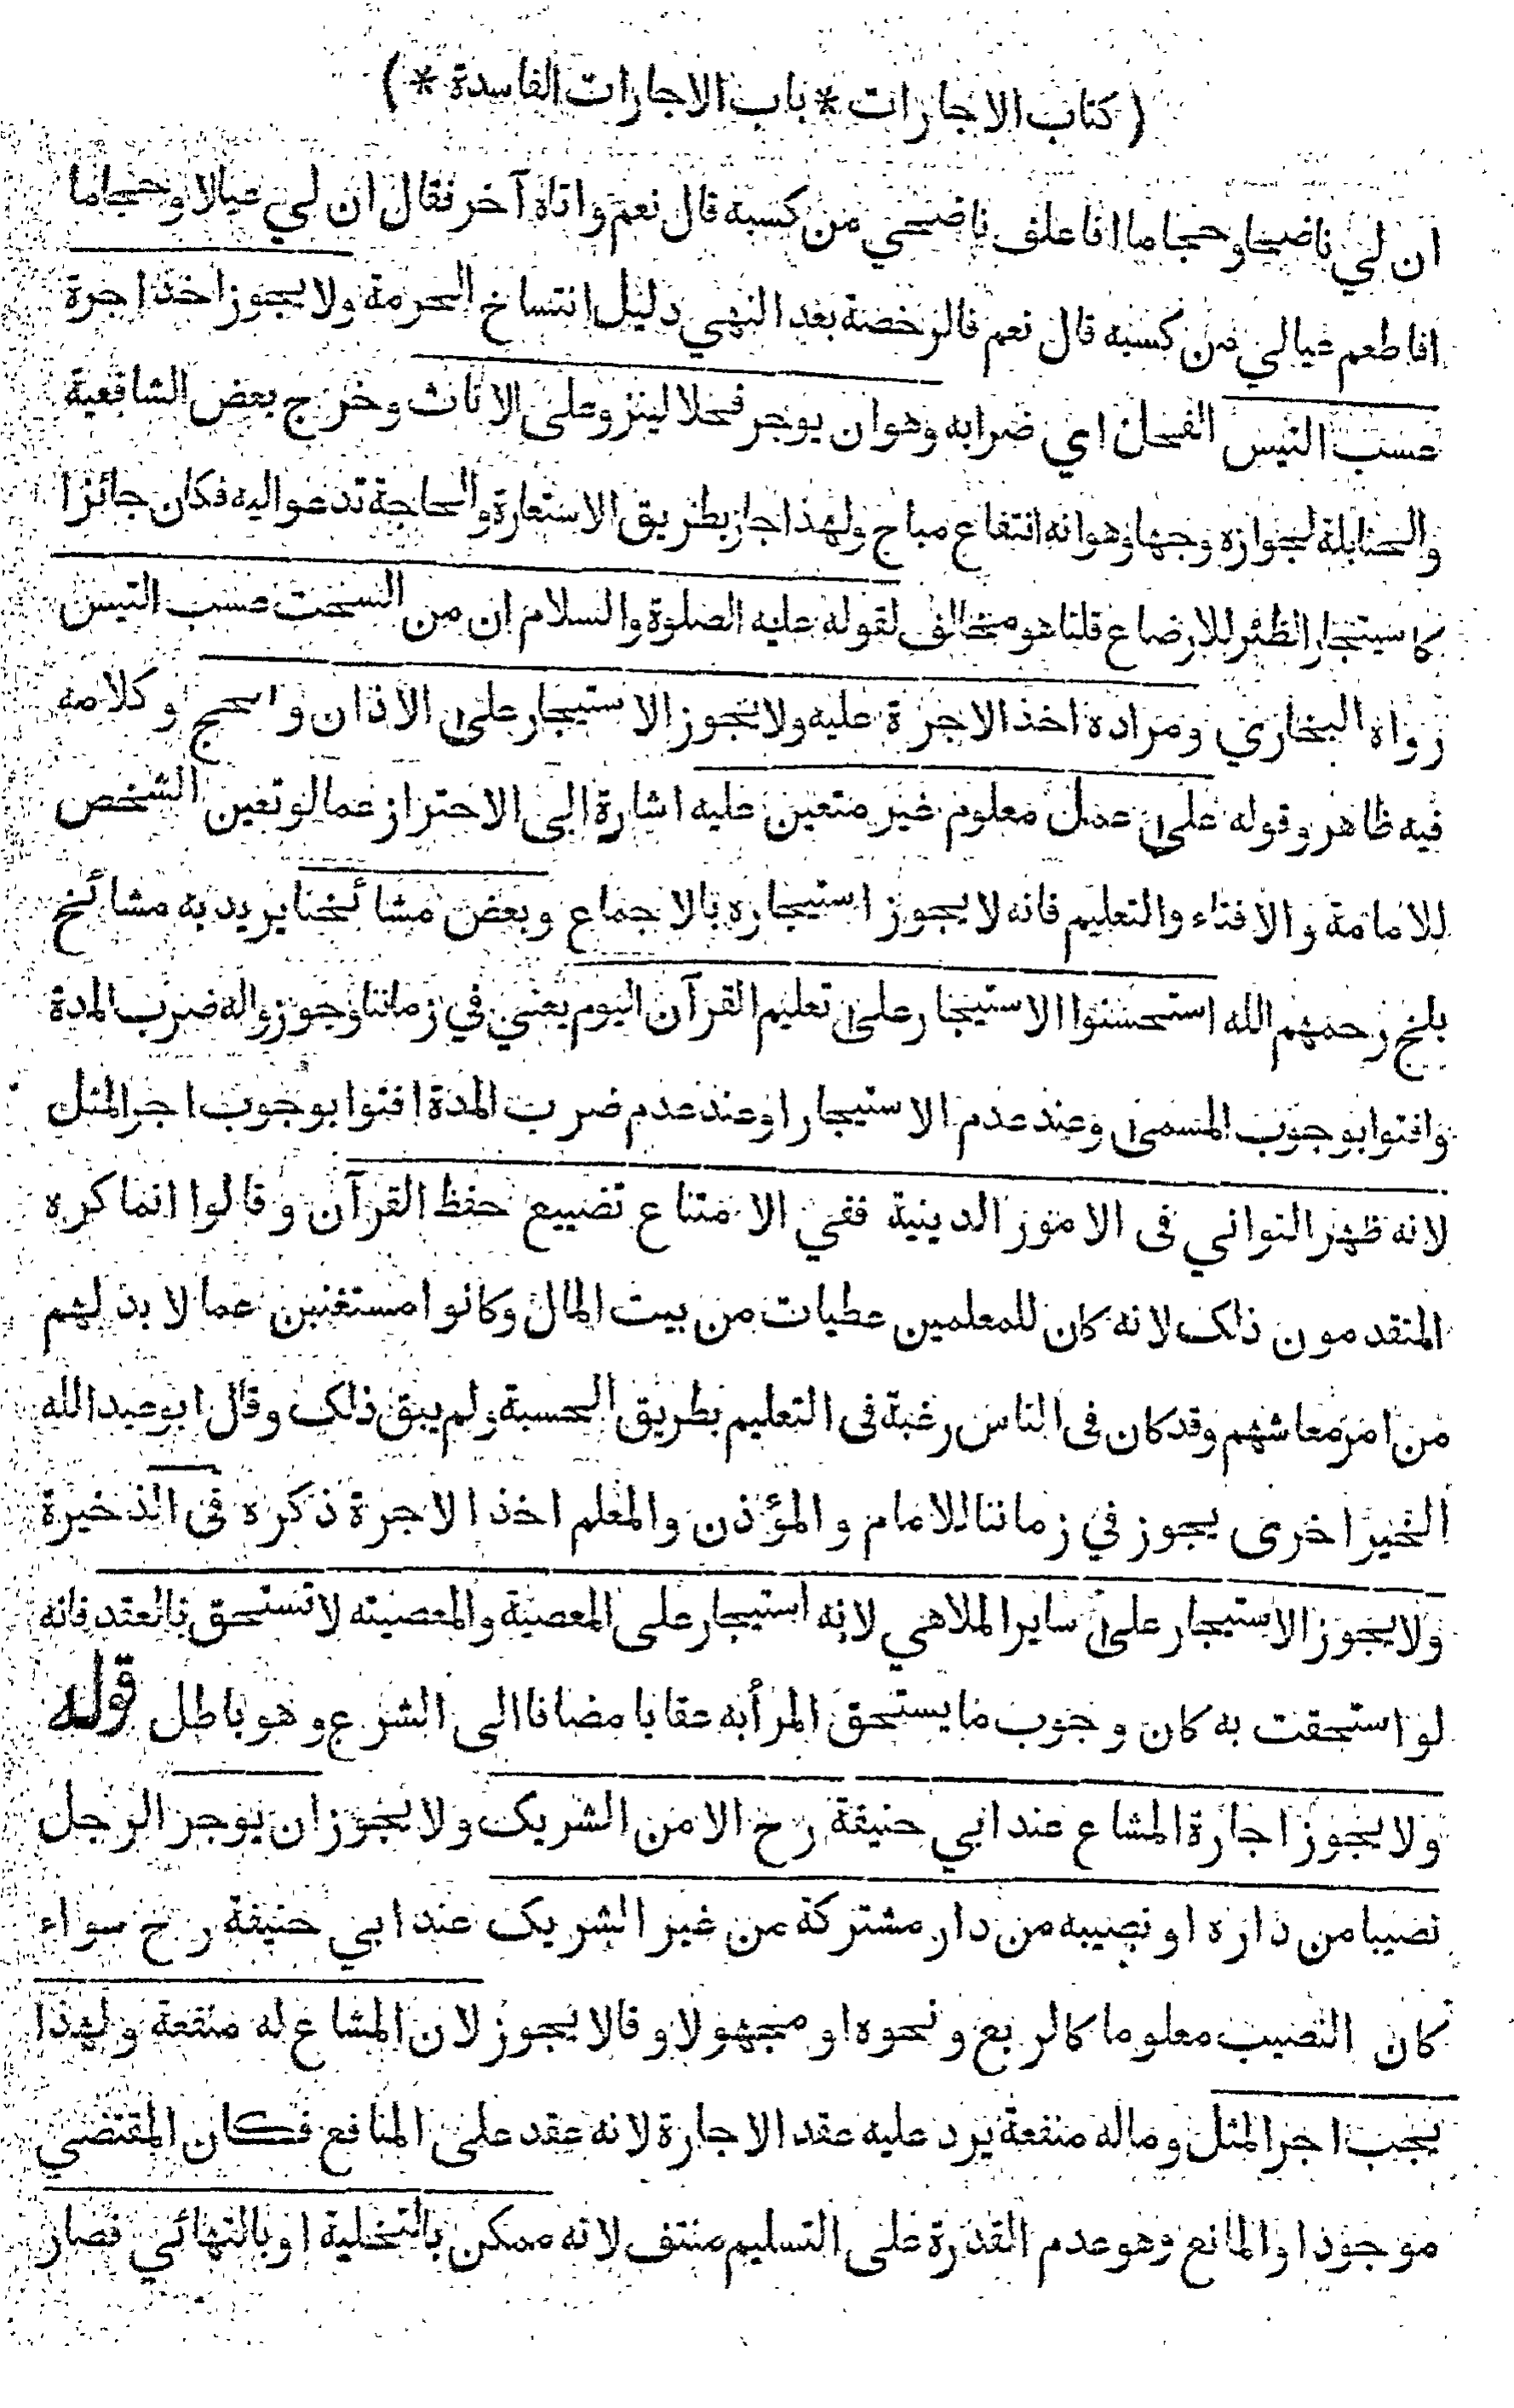 ( كتاب الاجارات * باب الاجارات الفاسدة * )
ان لي ناضحا وحجاما افاعلف ناضحي من كسبه قال نعم واتاه آخر فقال ان لي عيالا وحجاما
افاطعم عيالي من كسبه قال نعم فالرخصة بعد النهي دليل انتساخ الحرمة ولا يجوز اخذ اجرة
عسب التيس الفحل اي ضرابه وهو ان يوجر فحلا لينزو على الاناث وخرج بعض الشافعية
والحنابلة لجوازه وجها وهو انه انتفاع مباح ولهذا جاز بطريق الاستعارة والحاجة تدعو اليه فكان جائزا
كاستيجار الظئر للارضاع قلنا هو مخالف لقوله عليه الصلوة والسلام ان من السحت عسب التيس
رواه البخاري ومراده اخذ الاجرة عليه ولا يجوز الاستيجار على الاذان والحج وكلامه
فيه ظاهر وقوله على عمل معلوم غير متعين عليه اشارة الى الاحتراز عما لو تعين الشخص
للامامة والافتاء والتعليم فانه لا يجوز استيجاره بالاجماع وبعض مشائخنا يريد به مشائخ
بلخ رحمهم الله استحسنوا الاستيجار على تعليم القرآن اليوم يعني في زماننا وجوزوا له ضرب المدة
وافتوا بوجوب المسمى وعند عدم الاستيجار او عند عدم ضرب المدة افتوا بوجوب اجر المثل
لانه ظهر التواني فى الامور الدينية ففي الامتناع تضييع حفظ القرآن وقالوا انما كره
المتقدمون ذلك لانه كان للمعلمين عطيات من بيت المال وكانوا مستغنين عما لا بد لهم
من امر معاشهم وقد كان فى الناس رغبة فى التعليم بطريق الحسبة ولم يبق ذلك وقال ابو عبد الله
الخيراخرى يجوز في زماننا للامام والمؤذن والمعلم اخذ الاجرة ذكره فى الذخيرة
ولا يجوز الاستيجار على ساير الملاهي لانه استيجار على المعصية والمعصيته لا تستحق بالعقد فانه
لو استحقت به كان وجوب ما يستحق المرأبه عقابا مضافا الى الشرع وهو باطل قوله
ولا يجوز اجارة المشاع عند ابي حنيفة رح الا من الشريك ولا يجوز ان يوجر الرجل
نصيبا من داره او نصيبه من دار مشتركة من غير الشريك عند ابي حنيفة رح سواء
كان النصيب معلوما كالربع ونحوه او مجهولا وقالا يجوز لان المشاع له منفعة ولهذا
يجب اجر المثل وماله منفعة يرد عليه عقد الاجارة لانه عقد على المنافع فكان المقتضي
موجودا والمانع وهو عدم القدرة على التسليم منتف لانه ممكن بالتخلية او بالتهائي فصار